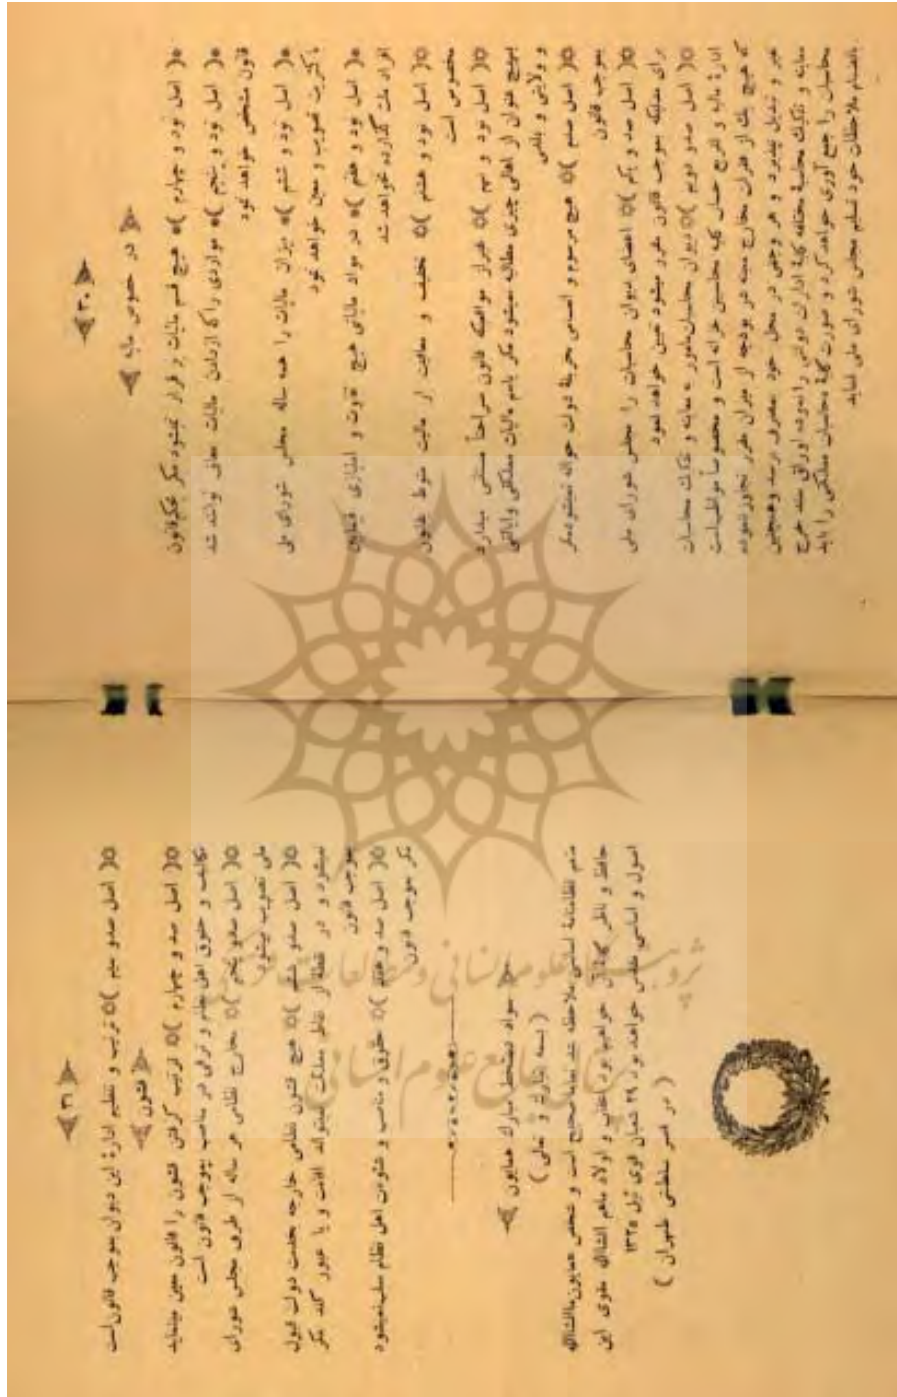 ﴿ ۳۰ ﴾
﴿ در خصوص مالیه ﴾
﴿ اصل نود و چهارم ﴾ هیچ قسم مالیات بر قرار نمیشود مگر بحکم قانون
﴿ اصل نود و پنجم ﴾ مواردی را که از دادن مالیات معاف توانند شد
قانون مشخص خواهد نمود
﴿ اصل نود و ششم ﴾ میزان مالیات را همه ساله مجلس شورای ملی
با کثریت تصویب و معین خواهد نمود
﴿ اصل نود و هفتم ﴾ در مواد مالیاتی هیچ تفاوت و امتیازی فیمابین
افراد ملت گذارده نخواهد شد
﴿ اصل نود و هشتم ﴾ تخفیف و معافیت از مالیات منوط بقانون
مخصوص است
﴿ اصل نود و نهم ﴾ غیر از مواقعیکه قانون صراحتاً مستثنی میدارد
بهیچ عنوان از اهالی چیزی مطالبه نمیشود مگر باسم مالیات مملکتی و ایالتی
و ولایتی و بلدی
﴿ اصل صدم ﴾ هیچ مرسوم و انعامی بخزینهٔ دولت حواله نمیشود مگر
بموجب قانون
﴿ اصل صد و یکم ﴾ اعضای دیوان محاسبات را مجلس شورای ملی
برای مدتیکه بموجب قانون مقرر میشود تعیین خواهد نمود
﴿ اصل صد و دویم ﴾ دیوان محاسبات مامور به معاینه و تفکیک محاسبات
ادارهٔ مالیه و تفریغ حساب کلیه محاسبین خزانه است و مخصوصاً مواظب است
که هیچ یک از فقرات مخارج معینه در بودجه از میزان مقرر تجاوز ننموده
تغیر و تبدیل نپذیرد و هر وجهی در محل خود بمصرف برسد و همچنین
معاینه و تفکیک محاسبهٔ مختلفه کلیهٔ ادارات دولتی را نموده اوراق سند خرج
محاسبات را جمع آوری خواهد کرد و صورت کلیهٔ محاسبات مملکتی را باید
بانضمام ملاحظات خود تسلیم مجلس شورای ملی نماید
﴿ ۳۱ ﴾
﴿ اصل صد و سیم ﴾ ترتیب و تنظیم ادارهٔ این دیوان بموجب قانون است
﴿ قشون ﴾
﴿ اصل صد و چهارم ﴾ ترتیب گرفتن قشون را قانون معین مینماید
تکالیف و حقوق اهل نظام و ترقی در مناصب بموجب قانون است
﴿ اصل صد و پنجم ﴾ مخارج نظامی هر ساله از طرف مجلس شورای
ملی تصویب میشود
﴿ اصل صد و ششم ﴾ هیچ قشون نظامی خارجه بخدمت دولت قبول
نمیشود و در نقطهٔ از نقاط مملکت نمیتواند اقامت و یا عبور کند مگر
بموجب قانون
﴿ اصل صد و هفتم ﴾ حقوق و مناصب و شئونات اهل نظام سلب نمیشود
مگر بموجب قانون
﴿ سواد دستخط مبارک همایون ﴾
( بسمه تبارک و تعالی )
متمم نظامنامهٔ اساسی ملاحظه شد تماماً صحیح است و شخص همایون ما انشاءالله
حافظ و ناظر کلیهٔ آن خواهیم بود اعقاب و اولاد ماهم انشاءالله مقوی این
اصول و اساس مقدس خواهند بود ۲۹ شعبان قوی ئیل ۱۳۲۵
( در قصر سلطنتی طهران )
پژوهشگاه علوم انسانی و مطالعات فرهنگی
پرتال جامع علوم انسانی